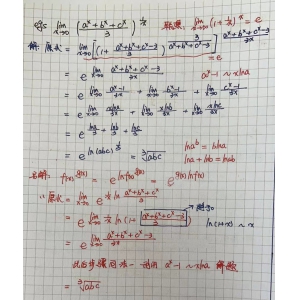 eg: lim x→0 ((a^x+b^x+c^x)/3)^(1/x) lim x→∞ (1+1/x)^x = e
解: 原式 = lim x→0 [(1+ (a^x+b^x+c^x-3)/3)^(3/(a^x+b^x+c^x-3))]^((a^x+b^x+c^x-3)/3x)
= e
= e^(lim x→0 (a^x+b^x+c^x-3)/3x) a^x-1 ~ xlna
= e^(lim x→0 (a^x-1)/3x + lim x→0 (b^x-1)/3x + lim x→0 (c^x-1)/3x)
= e^(lim x→0 xlna/3x + lim x→0 xlnb/3x + lim x→0 xlnc/3x)
= e^(lna/3 + lnb/3 + lnc/3) lna^b = blna
= e^(ln(abc)^(1/3)) = ∛abc lna + lnb = lnab
f(x)^g(x) = e^(lnf(x)^g(x)) = e^(g(x)lnf(x))
原式 = lim x→0 e^(1/x ln (a^x+b^x+c^x)/3)
= e^(lim x→0 1/x ln (a^x+b^x+c^x)/3) →0
= e^(lim x→0 1/x ln(1+ (a^x+b^x+c^x-3)/3)) ln(1+x) ~ x
此后步骤同法一 a^x-1 ~ xlna 解题
= ∛abc